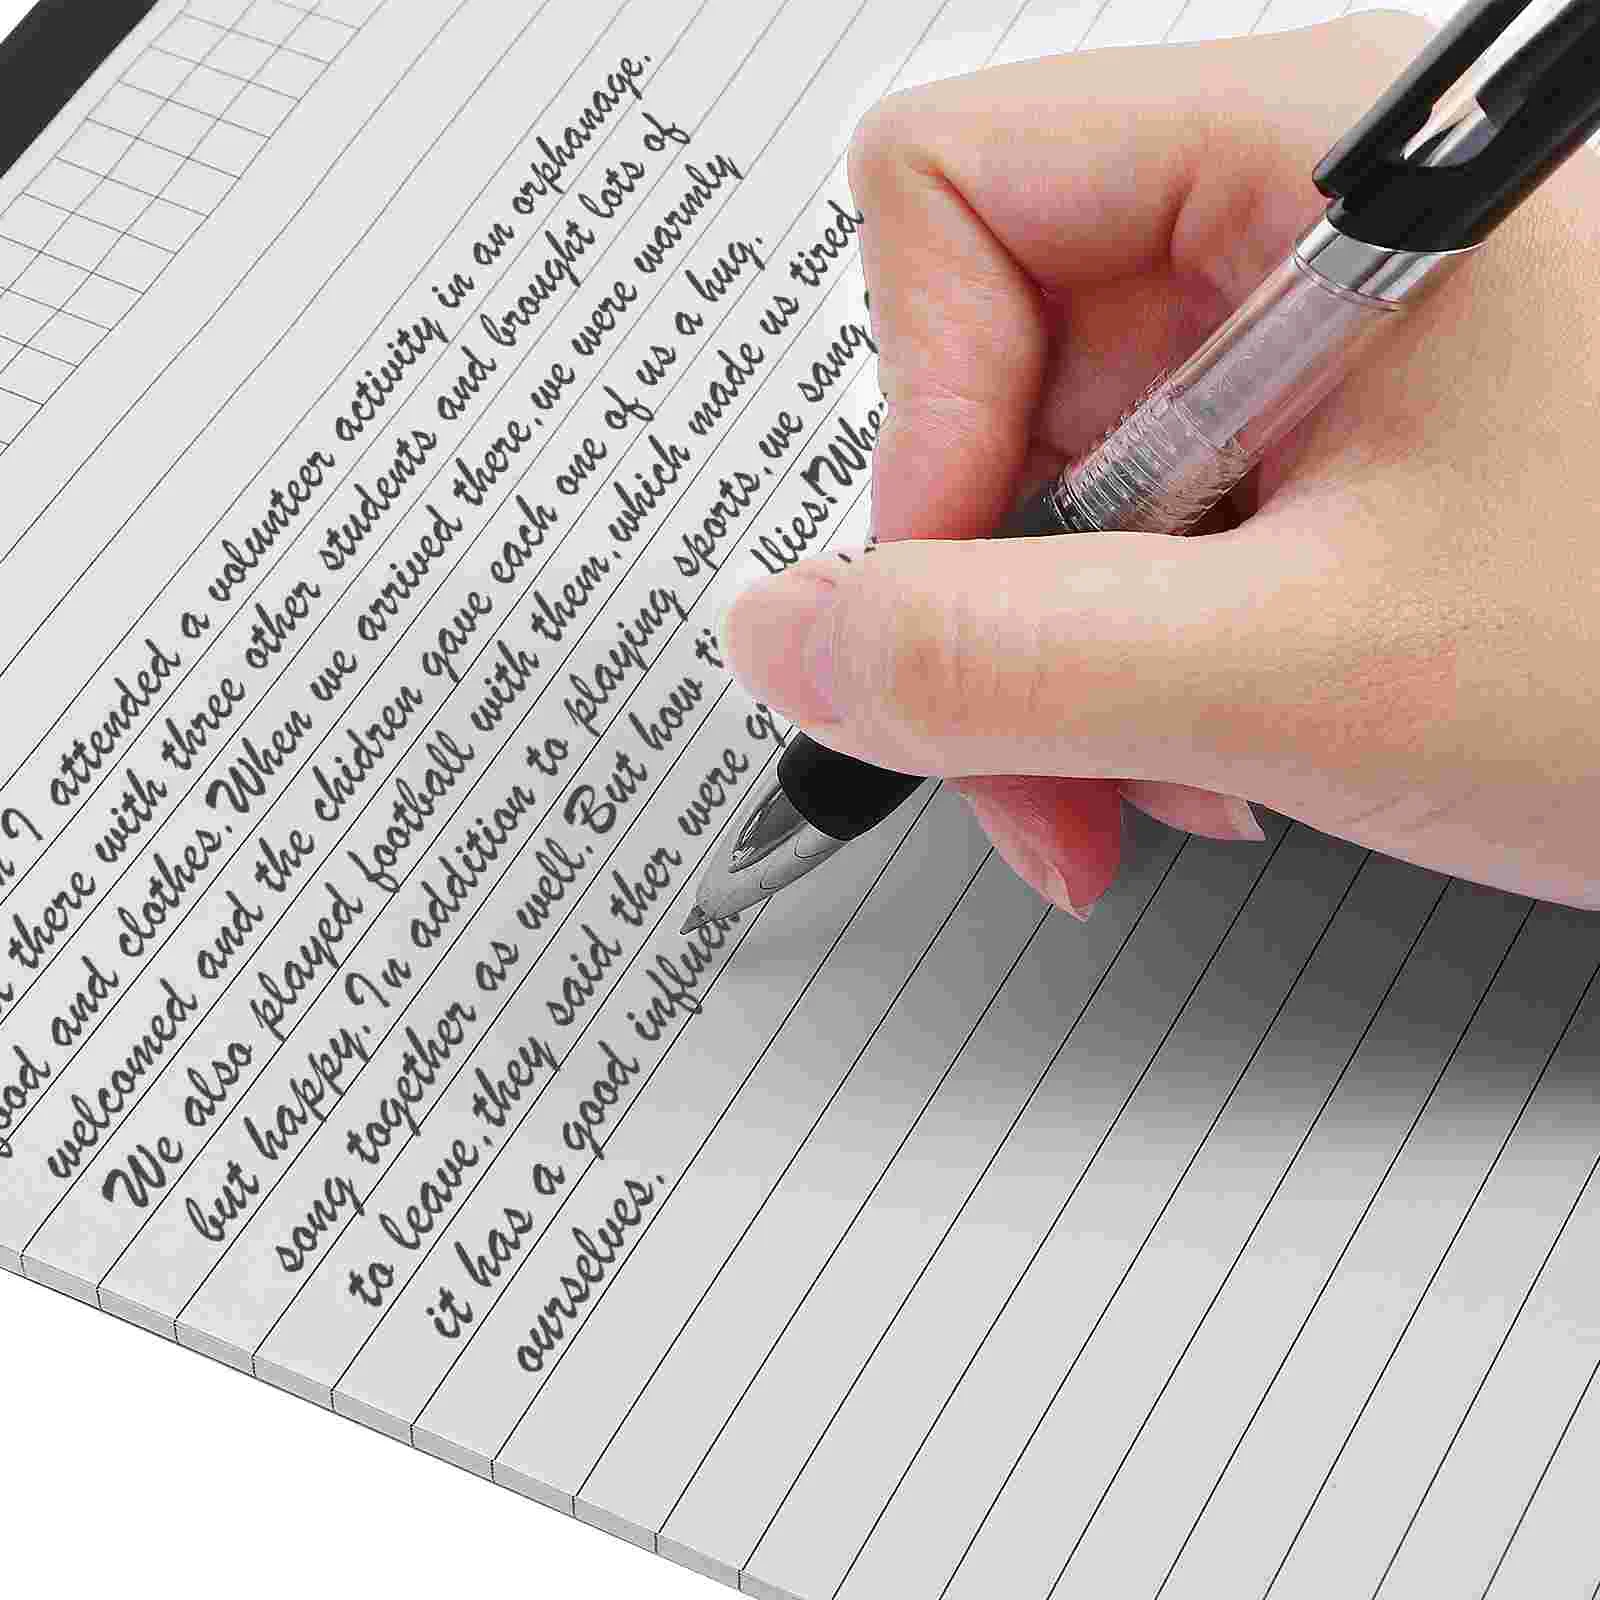 I attended a volunteer activity in an orphanage.
there with three other students and brought lots of
and clothes. When we arrived there, we were warmly
welcomed and the chidren gave each one of us a hug.
We also played football with them, which made us tired
but happy. In addition to playing sports, we sang
song together as well. But how llies! Whe
to leave, they said ther were
it has a good influen
ourselves.